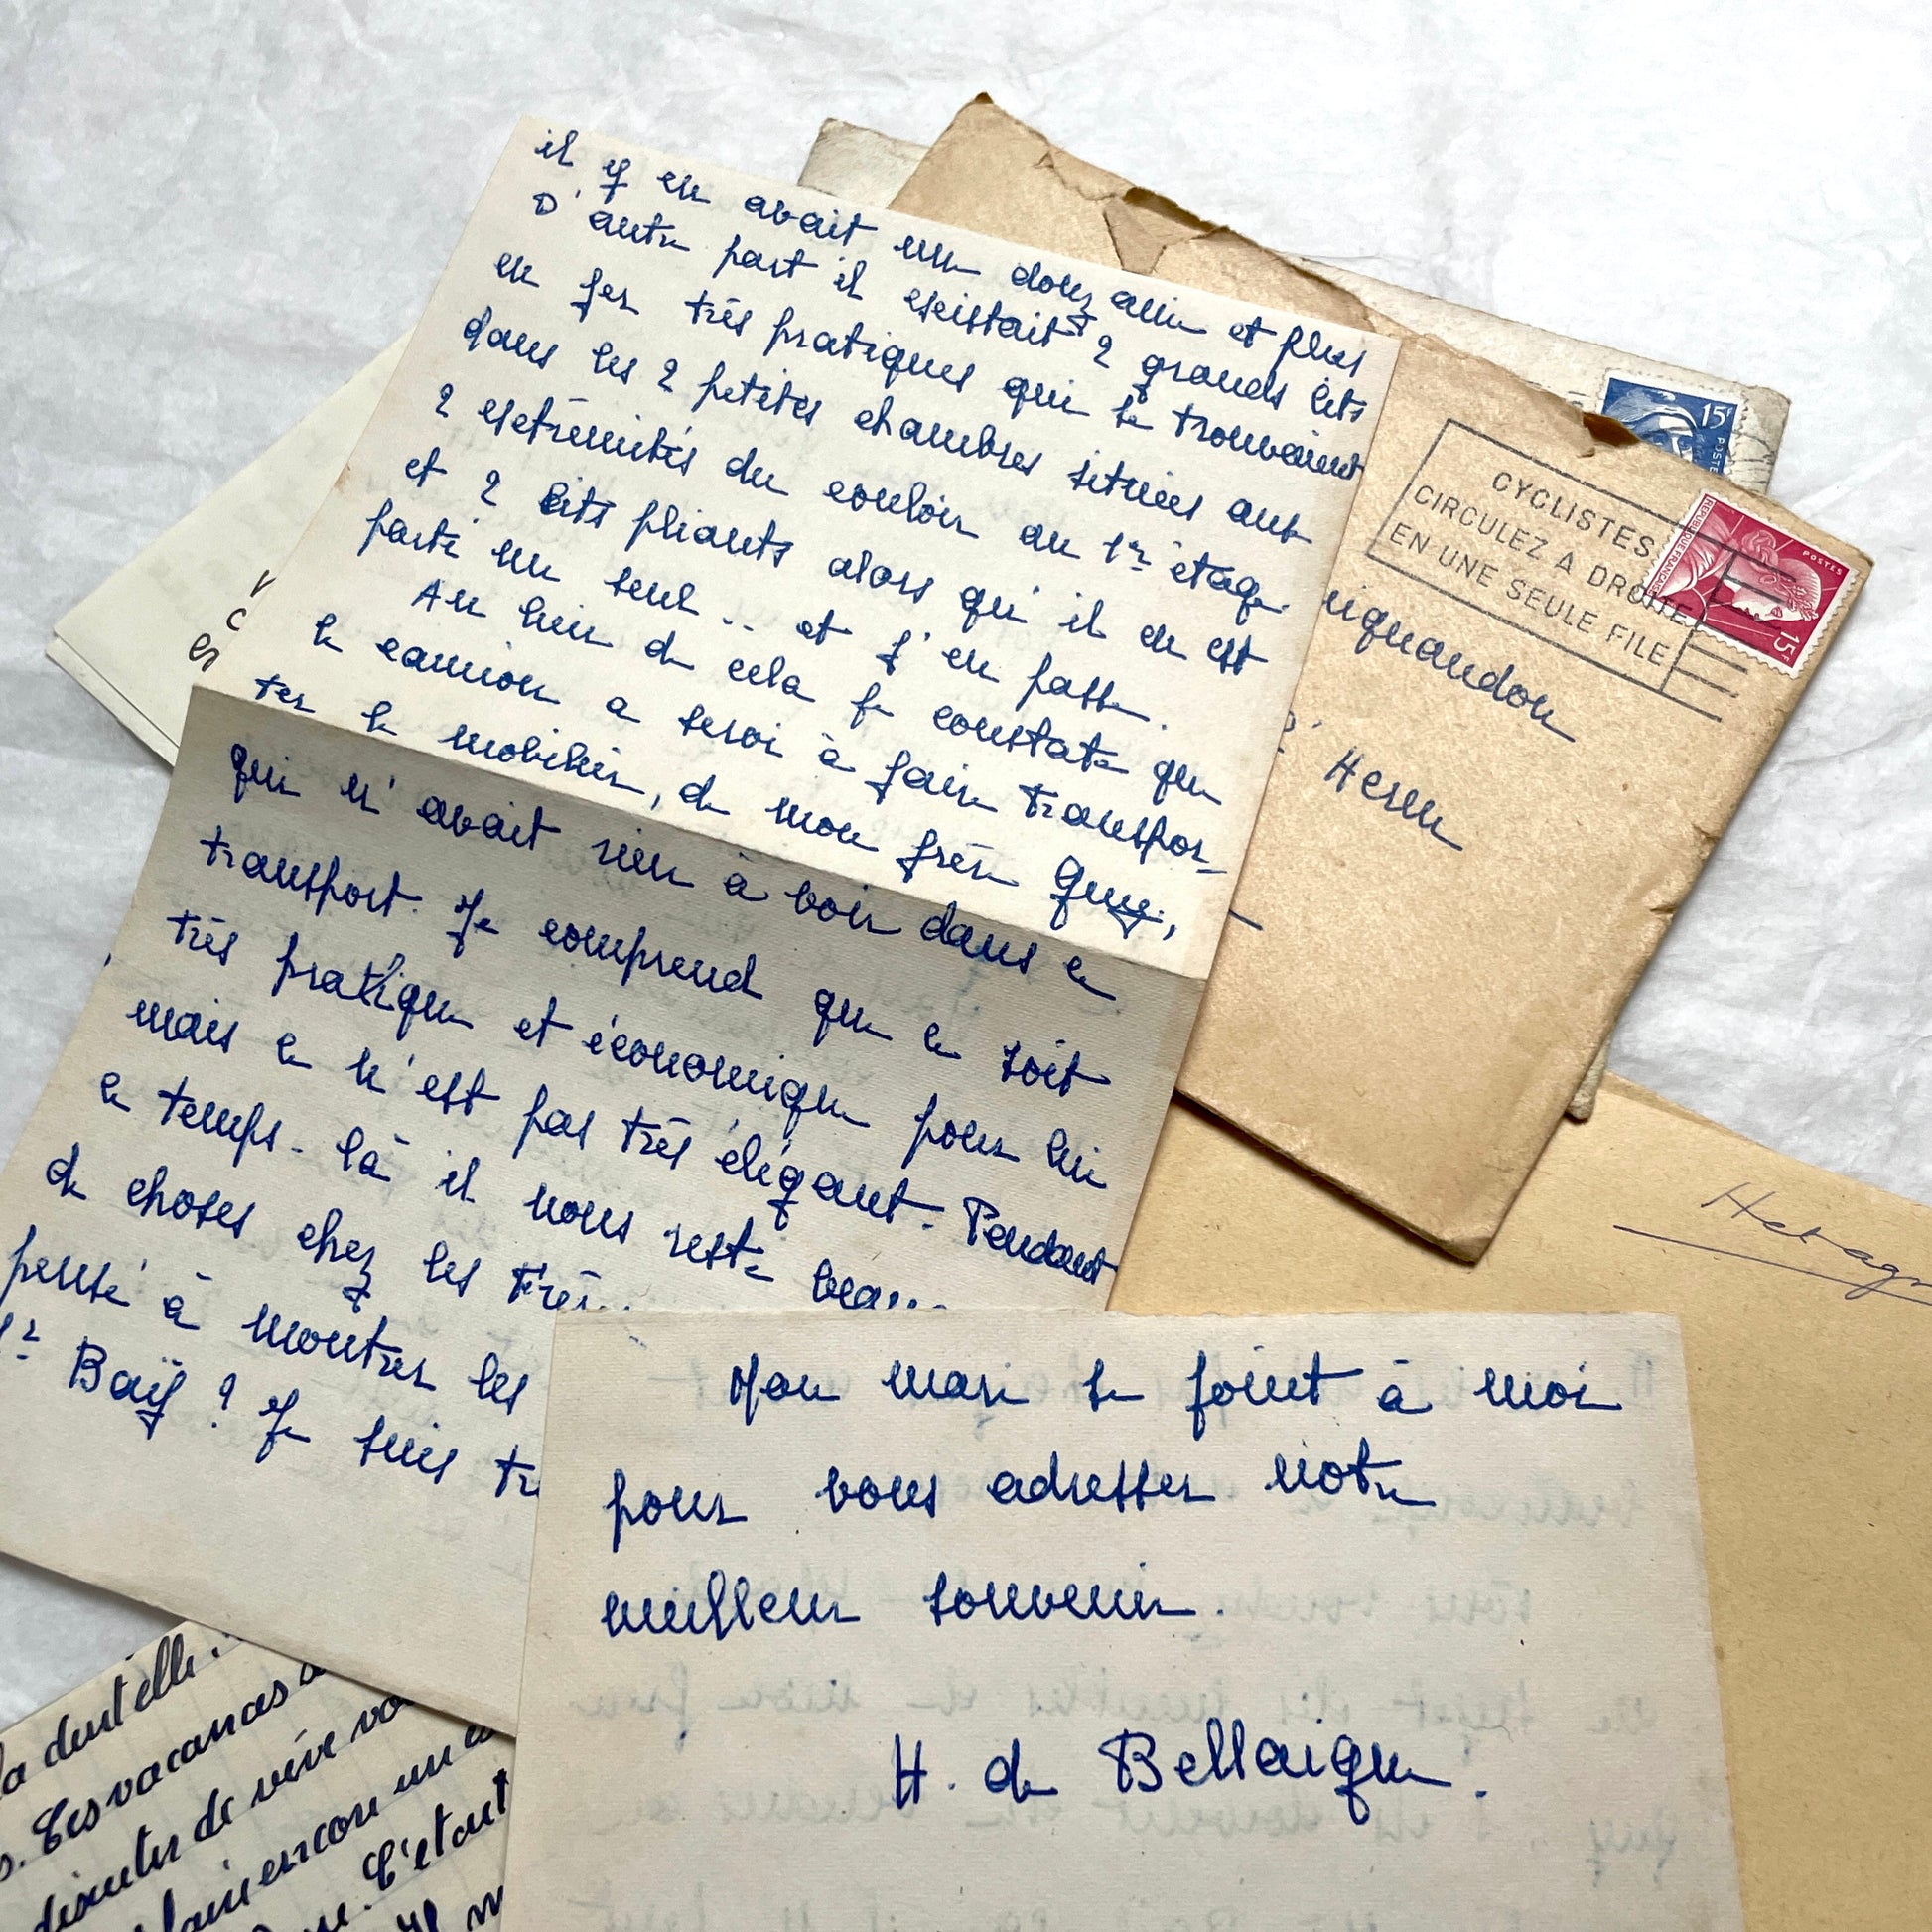 il y en avait une douzaine et plus
D'autre part il existait 2 grands lits
en fer très pratiques qui se trouvaient
dans les 2 petites chambres situées aux
2 extrémités du couloir au 1er étage
et 2 lits pliants alors qu'il en est
parti un seul .. et j'en passe.
Au lieu de cela je constate que
le camion a servi à faire transpor-
ter le mobilier, de mon frère Guy,
qui n'avait rien à voir dans ce
transport. Je comprend que ce soit
très pratique et économique pour lui
mais ce n'est pas très élégant. Pendant
ce temps-là il nous reste
de choses chez les
pensé à montrer les
Baÿ ? Je suis
Mon mari se joint à moi
pour vous adresser notre
meilleur souvenir.
H. de Bellaigue.
15F
POSTES
CYCLISTES
CIRCULEZ A DROITE
EN UNE SEULE FILE
REPUBLIQUE FRANÇAISE
POSTES
15F
Herm
la dentelle.
Les vacances
discuter de vive
encore un
C'était